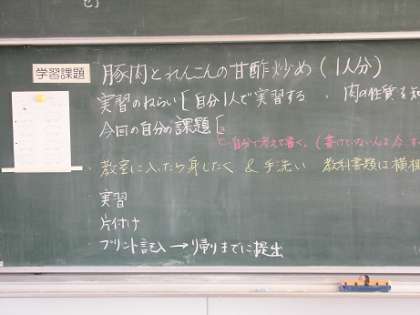 学習課題 豚肉とれんこんの甘酢炒め(1人分)
実習のねらい[自分1人で実習する、肉の性質を
今回の自分の課題[
自分で考えて書く。(書けていない人は今、
教室に入ったら身じたく & 手洗い 教科書類は横
実習
片付け
プリント記入→帰りまでに提出